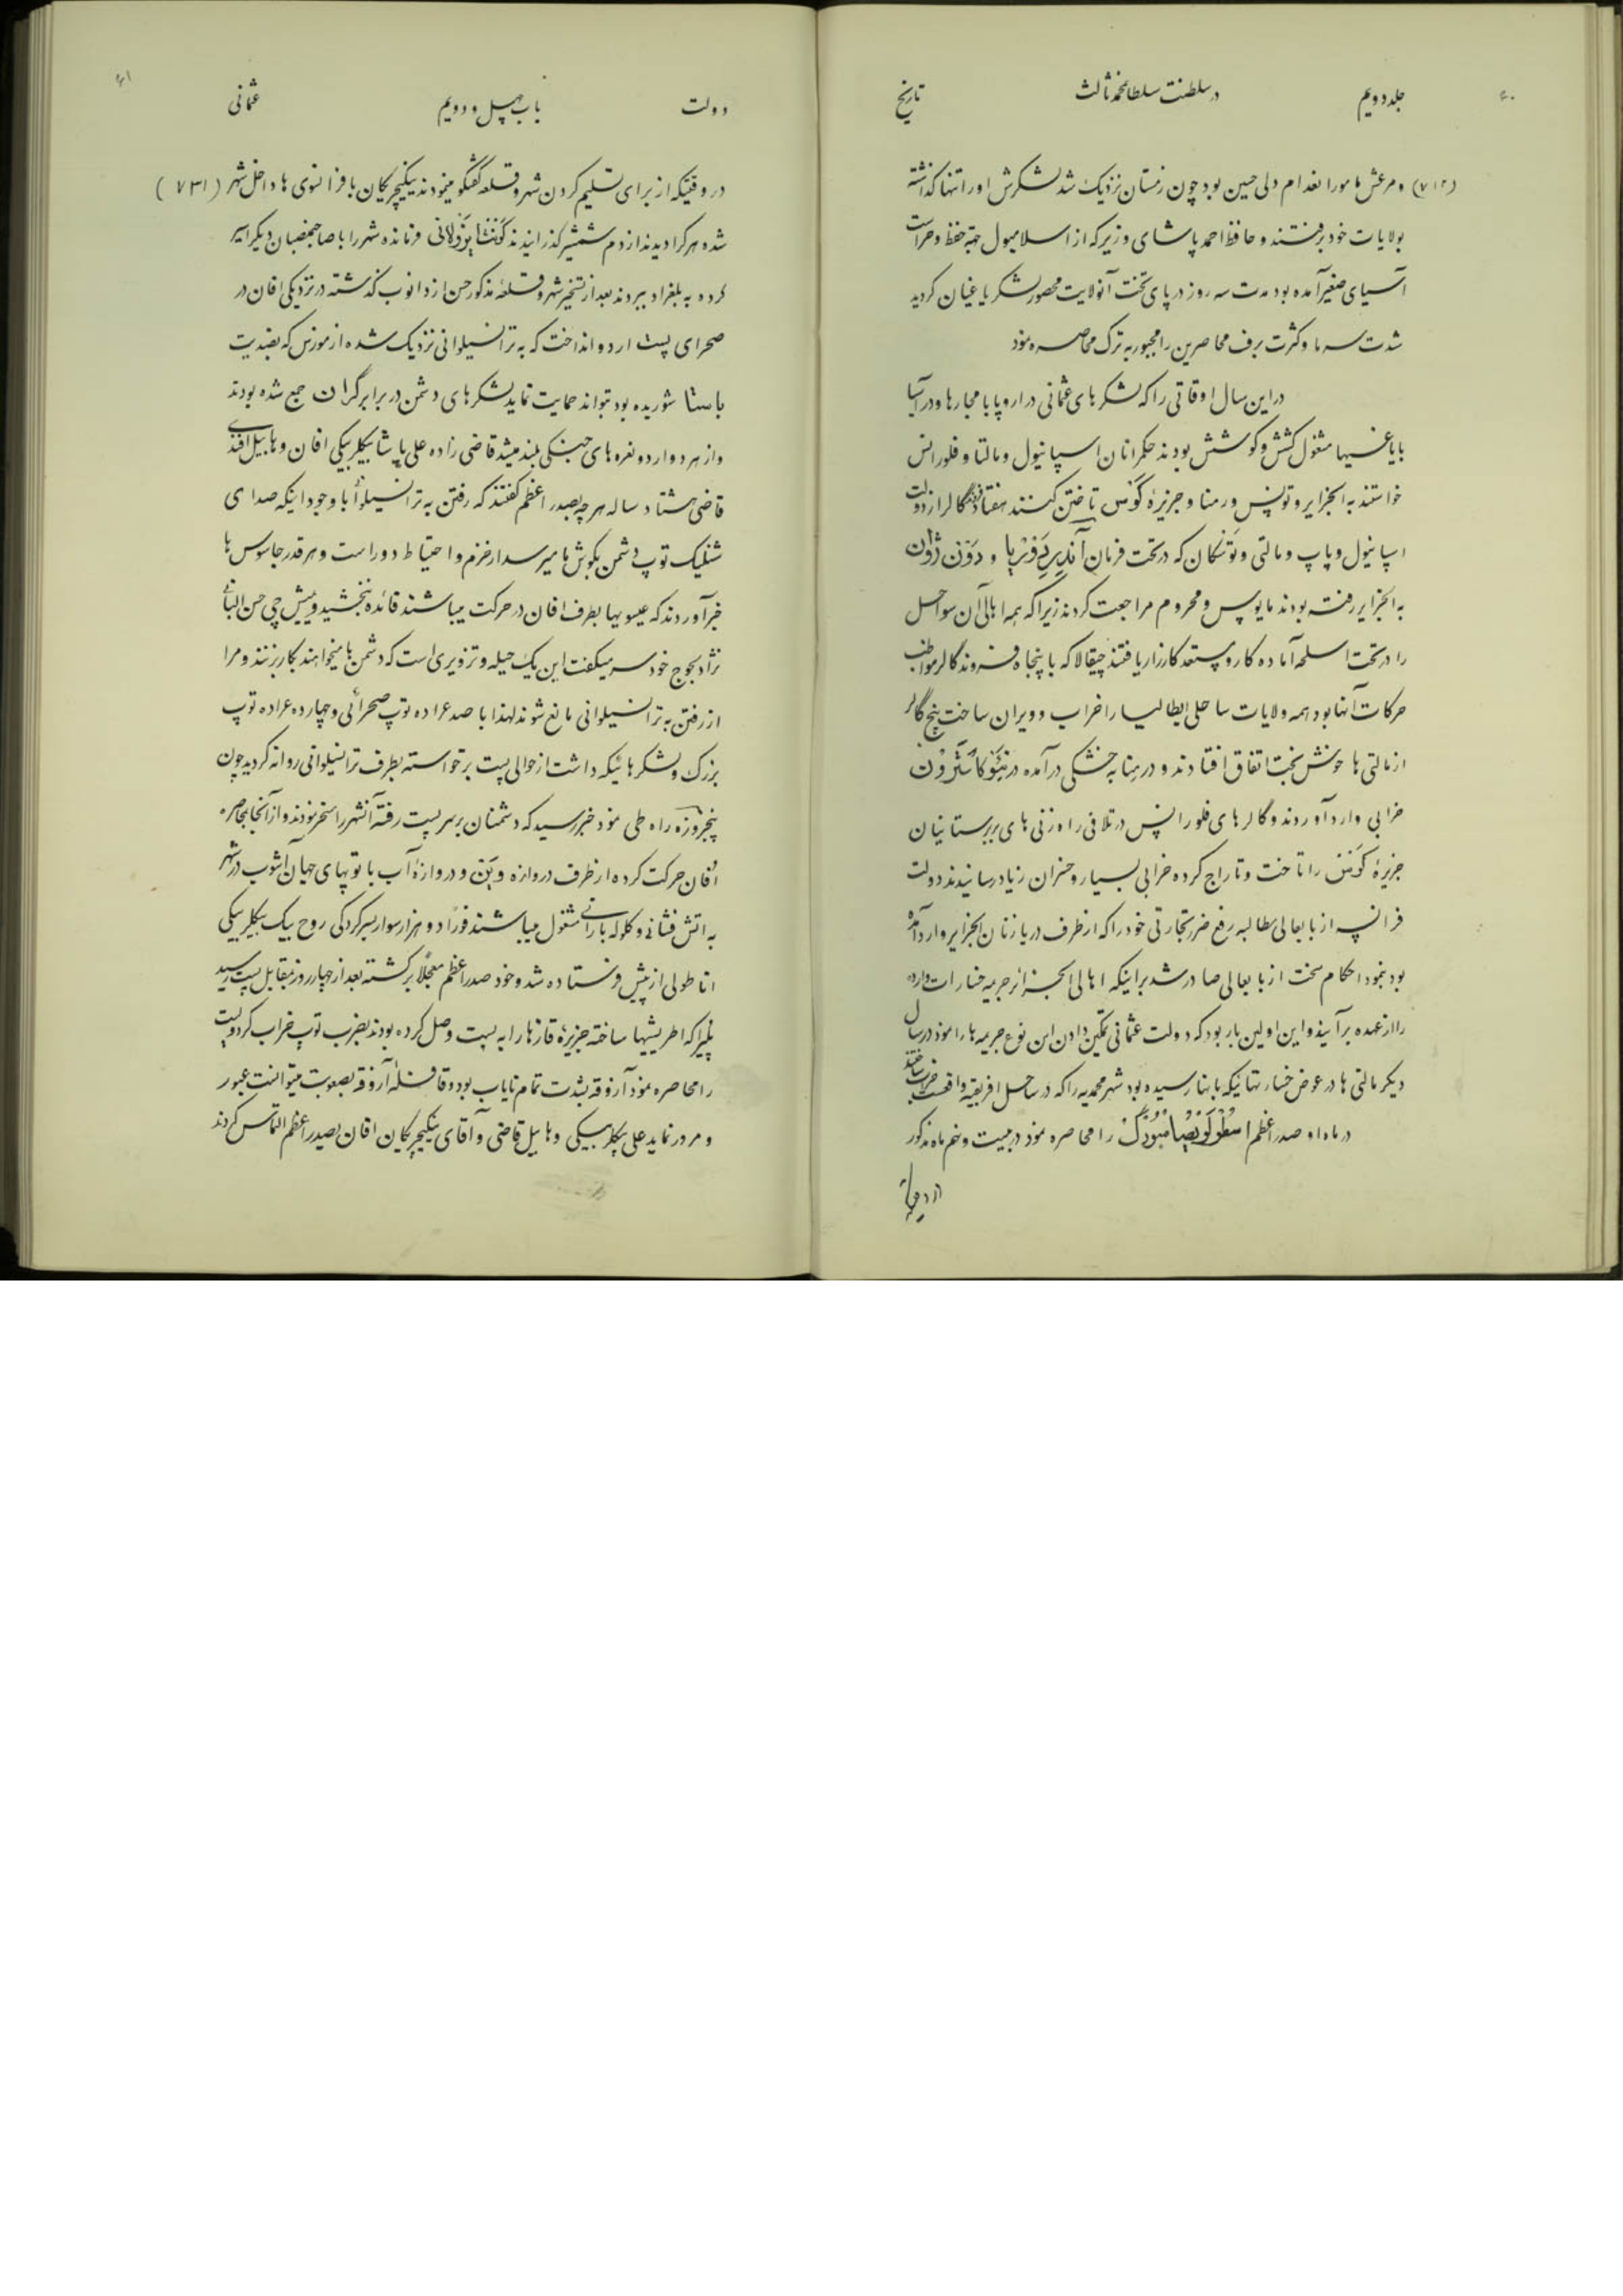 ۶۰
جلد دویم در سلطنت سلطان محمد ثالث تاریخ
(۷۱۲) و مرعش مامور انعدام دلی حسین بود چون زمستان نزدیک شد لشکرش او را تنها گذاشته
بولایات خود برفتند و حافظ احمد پاشای وزیر که از اسلامبول جهة حفظ و حراست
آسیای صغیر آمده بود مدت سه روز در پای تخت آنولایت محصور لشکر یاغیان گردید
شدت سرما و کثرت برف محاصرین را مجبور به ترک محاصره نمود
در این سال اوقاتی را که لشکرهای عثمانی در اروپا با مجارها و در آسیا
با یاغیها مشغول کشش و کوشش بودند حکمرانان اسپانیول و مالتا و فلورانس
خواستند به الجزایر و تونس و رمنا و جزیرهٔ گوس تاختن کنند هفتاد گالر از دولت
اسپانیول و پاپ و مالتی و توسکان که در تحت فرمان آندری دوریا و دون ژوان
به الجزایر رفته بودند مایوس و محروم مراجعت کردند زیرا که همه اهالی آن سواحل
را در تحت اسلحه آماده کار و مستعد کارزار یافتند چیقالا که با پنجاه فروند گالر مواظب
حرکات آنها بود همه ولایات ساحلی ایطالیا را خراب و ویران ساخت پنج گالر
از مالتی ها خوش بخت اتفاق افتادند و در منا به خشکی درآمده در
خرابی وارد آوردند و گالرهای فلورانس در تلافی راه زنی های بربرستانیان
جزیرهٔ گوس را تاخت و تاراج کرده خرابی بسیار و خسران زیاد رسانیدند دولت
فرانسه از بابعالی مطالبه رفع ضرر تجارتی خود را که از طرف دریا زنان الجزایر وارد آمده
بود نمود احکام سخت از بابعالی صادر شد بر اینکه اهالی الجزائر جریمه خسارات وارده
را از عهده برآیند و این اولین بار بود که دولت عثمانی تمکین دادن این نوع جریمه ها را نمود در سال
دیگر مالتی ها در عوض خسارتهائیکه بانها رسیده بود شهر محمدیه را که در ساحل افریقیه واقعست خراب ساختند
در ماه اوت صدر اعظم را محاصره نمود در بیست و نهم ماه مذکور
۶۱
دولت باب چهل و دویم عثمانی
در وقتیکه از برای تسلیم کردن شهر و قلعه گفتگو مینمودند ینگیچریکان با فرانسوی ها داخل شهر (۷۳۱)
شده هر کرا دیدند از دم شمشیر گذرانیدند کونت ایزولانی فرمانده شهر را با صاحبمنصبان دیگر اسیر
کرده به بلغراد بردند بعد از تسخیر شهر و قلعهٔ مذکور حسن از دانوب گذشته در نزدیکی افان در
صحرای پست اردو انداخت که به ترانسیلوانی نزدیک شده از موزس که بضدیت
باستا شوریده بود بتواند حمایت نماید لشکرهای دشمن در برابر گران جمع شده بودند
و از هر دو اردو نعره های جنگی بلند میشد قاضی زاده علی پاشا بیگلربیگی افان و هابیل افندی
قاضی هشتاد ساله هر چه بصدر اعظم گفتند که رفتن به ترانسیلوانی با وجود اینکه صدای
شلیک توپ دشمن بگوش ما میرسد از حزم و احتیاط دور است و هر قدر جاسوس ها
خبر آوردند که عیسویها بطرف افان در حرکت میباشند فائده نبخشید و یمیش چی حسن البانی
نژاد لجوج خودسر میگفت این یک حیله و تزویری است که دشمن ها میخواهند بکار برنند و مرا
از رفتن به ترانسیلوانی مانع شوند لهذا با صد عراده توپ صحرائی و چهارده عراده توپ
بزرک و لشکرهائیکه داشت از حوالی پست برخواسته بطرف ترانسیلوانی روانه گردید چون
پنجروزه راه طی نمود خبر رسید که دشمنان بر سر پست رفته آنشهر را مسخر نمودند و از آنجا بمحاصره
افان حرکت کرده از طرف دروازه وین و دروازهٔ آب با توپهای جهان آشوب در شهر
به اتش فشانی و گلوله بارانی مشغول میباشند فوراً دو هزار سوار بسرکردگی روح بیک بیگلربیگی
اناطولی از پیش فرستاده شد و خود صدر اعظم معجلاً برگشته بعد از چهار روز بمقابل پست رسید
پلیرا که اطریشیها ساخته جزیرهٔ قازها را به پست وصل کرده بودند بضرب توپ خراب کرد و پست
را محاصره نمود آزوقه بشدت تمام نایاب بود و قافلهٔ آزوقه بصعوبت میتوانست عبور
و مرور نماید علی بیگلربیگی و هابیل قاضی و آقای ینگیچریکان افان بصدر اعظم التماس کردند